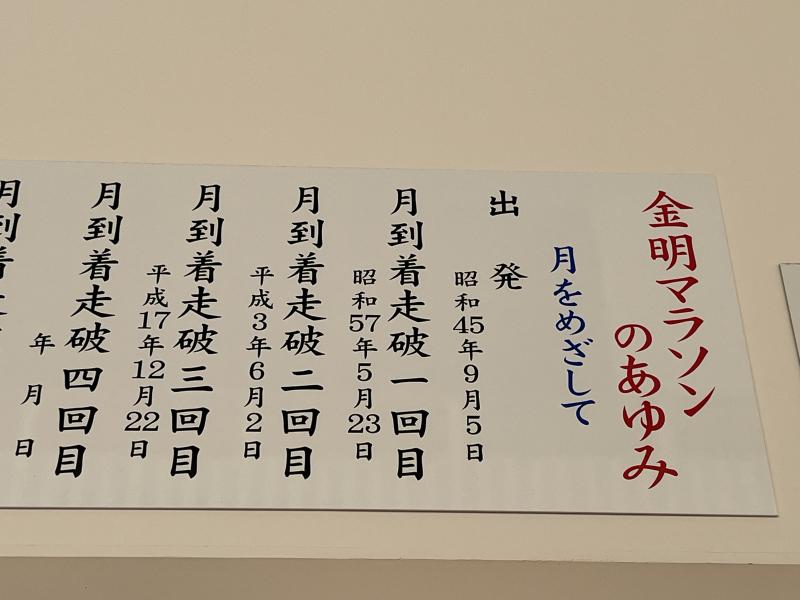 金明マラソン
のあゆみ
月をめざして
出発
昭和45年9月5日
月到着走破一回目
昭和57年5月23日
月到着走破二回目
平成3年6月2日
月到着走破三回目
平成17年12月22日
月到着走破四回目
年 月 日
月到着